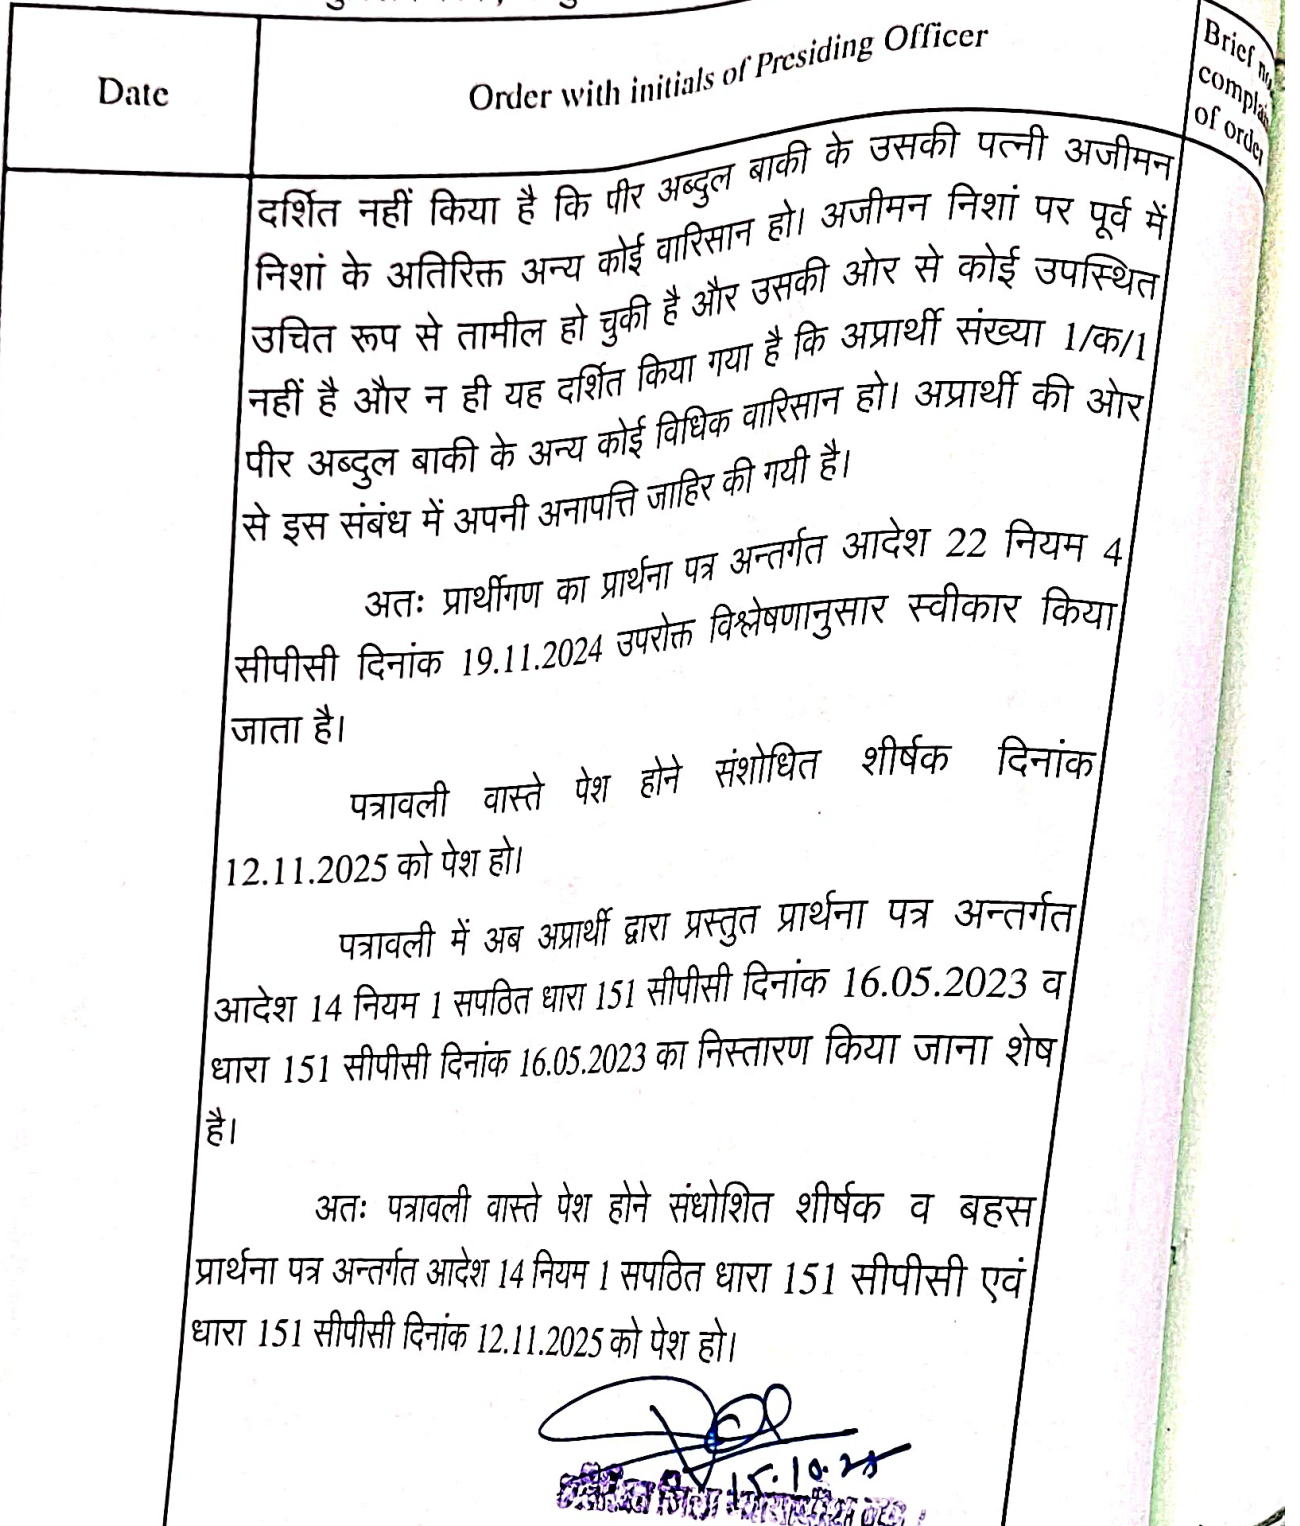 Date
Order with initials of Presiding Officer
Brief
of order
दर्शित नहीं किया है कि पीर अब्दुल बाकी के उसकी पत्नी अजीमन
निशां के अतिरिक्त अन्य कोई वारिसान हो। अजीमन निशां पर पूर्व में
उचित रूप से तामील हो चुकी है और उसकी ओर से कोई उपस्थित
नहीं है और न ही यह दर्शित किया गया है कि अप्रार्थी संख्या 1/क/1
पीर अब्दुल बाकी के अन्य कोई विधिक वारिसान हो। अप्रार्थी की ओर
से इस संबंध में अपनी अनापत्ति जाहिर की गयी है।
अतः प्रार्थीगण का प्रार्थना पत्र अन्तर्गत आदेश 22 नियम 4
सीपीसी दिनांक 19.11.2024 उपरोक्त विश्लेषणानुसार स्वीकार किया
जाता है।
पत्रावली वास्ते पेश होने संशोधित शीर्षक दिनांक
12.11.2025 को पेश हो।
पत्रावली में अब अप्रार्थी द्वारा प्रस्तुत प्रार्थना पत्र अन्तर्गत
आदेश 14 नियम 1 सपठित धारा 151 सीपीसी दिनांक 16.05.2023 व
धारा 151 सीपीसी दिनांक 16.05.2023 का निस्तारण किया जाना शेष
है।
अतः पत्रावली वास्ते पेश होने संधोशित शीर्षक व बहस
प्रार्थना पत्र अन्तर्गत आदेश 14 नियम 1 सपठित धारा 151 सीपीसी एवं
धारा 151 सीपीसी दिनांक 12.11.2025 को पेश हो।
15.10.25